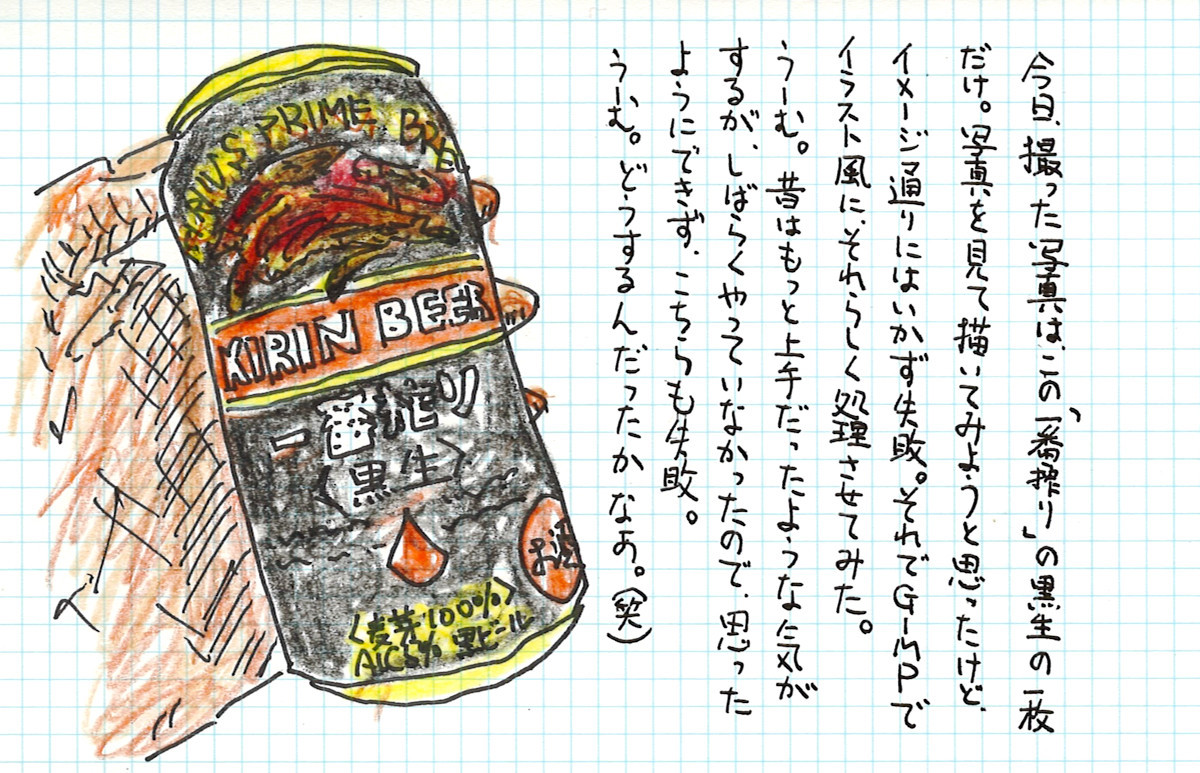 今日、撮った写真は、この「一番搾り」の黒生の一枚
だけ。写真を見て描いてみようと思ったけど、
イメージ通りにはいかず失敗。それでGIMPで
イラスト風に、それらしく処理させてみた。
うーむ。昔はもっと上手だったような気が
するが、しばらくやっていなかったので、思った
ようにできず、こちらも失敗。
うーむ。どうするんだったかなあ。(笑)
PRIME BRE
KIRIN BEER
一番搾り
〈黒生〉
お酒
〈麦芽100%〉
ALC5% 黒ビール